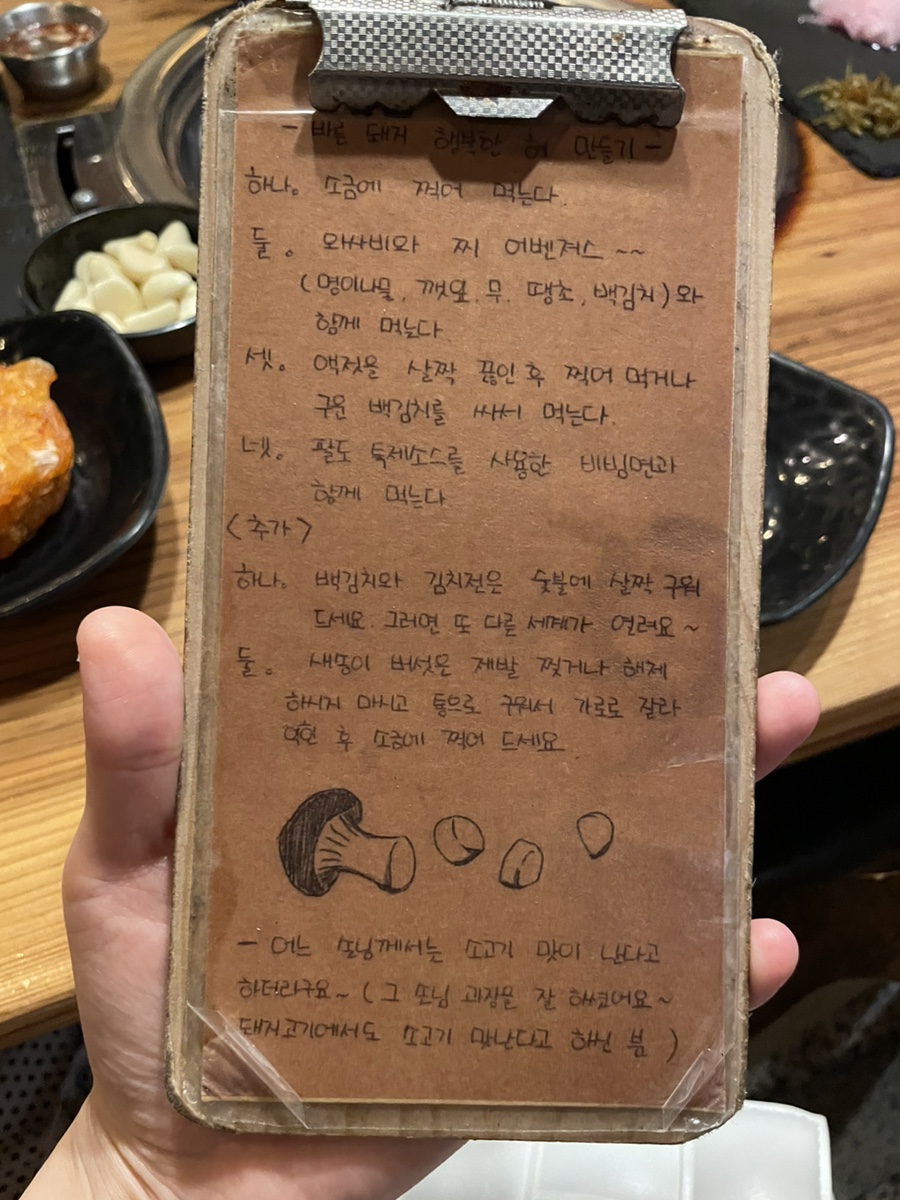 - 바른 돼지 행복한 혀 만들기 -
하나. 소금에 찍어 먹는다.
둘. 와사비와 찌 어벤져스 ~~
(명이나물, 깻잎, 무, 땡초, 백김치)와
함께 먹는다.
셋. 액젓을 살짝 끓인 후 찍어 먹거나
구운 백김치를 싸서 먹는다.
넷. 팔도 특제소스를 사용한 비빔면과
함께 먹는다
<추가>
하나. 백김치와 김치전은 숯불에 살짝 구워
드세요. 그러면 또 다른 세계가 열려요 ~
둘. 새송이 버섯은 제발 찢거나 해체
하시지 마시고 통으로 구워서 가로로 잘라
익힌 후 소금에 찍어 드세요
- 어느 손님께서는 소고기 맛이 난다고
하더라구요 ~ ( 그 손님 과장을 잘 하셨어요 ~
돼지고기에서도 소고기 맛난다고 하신 분 )